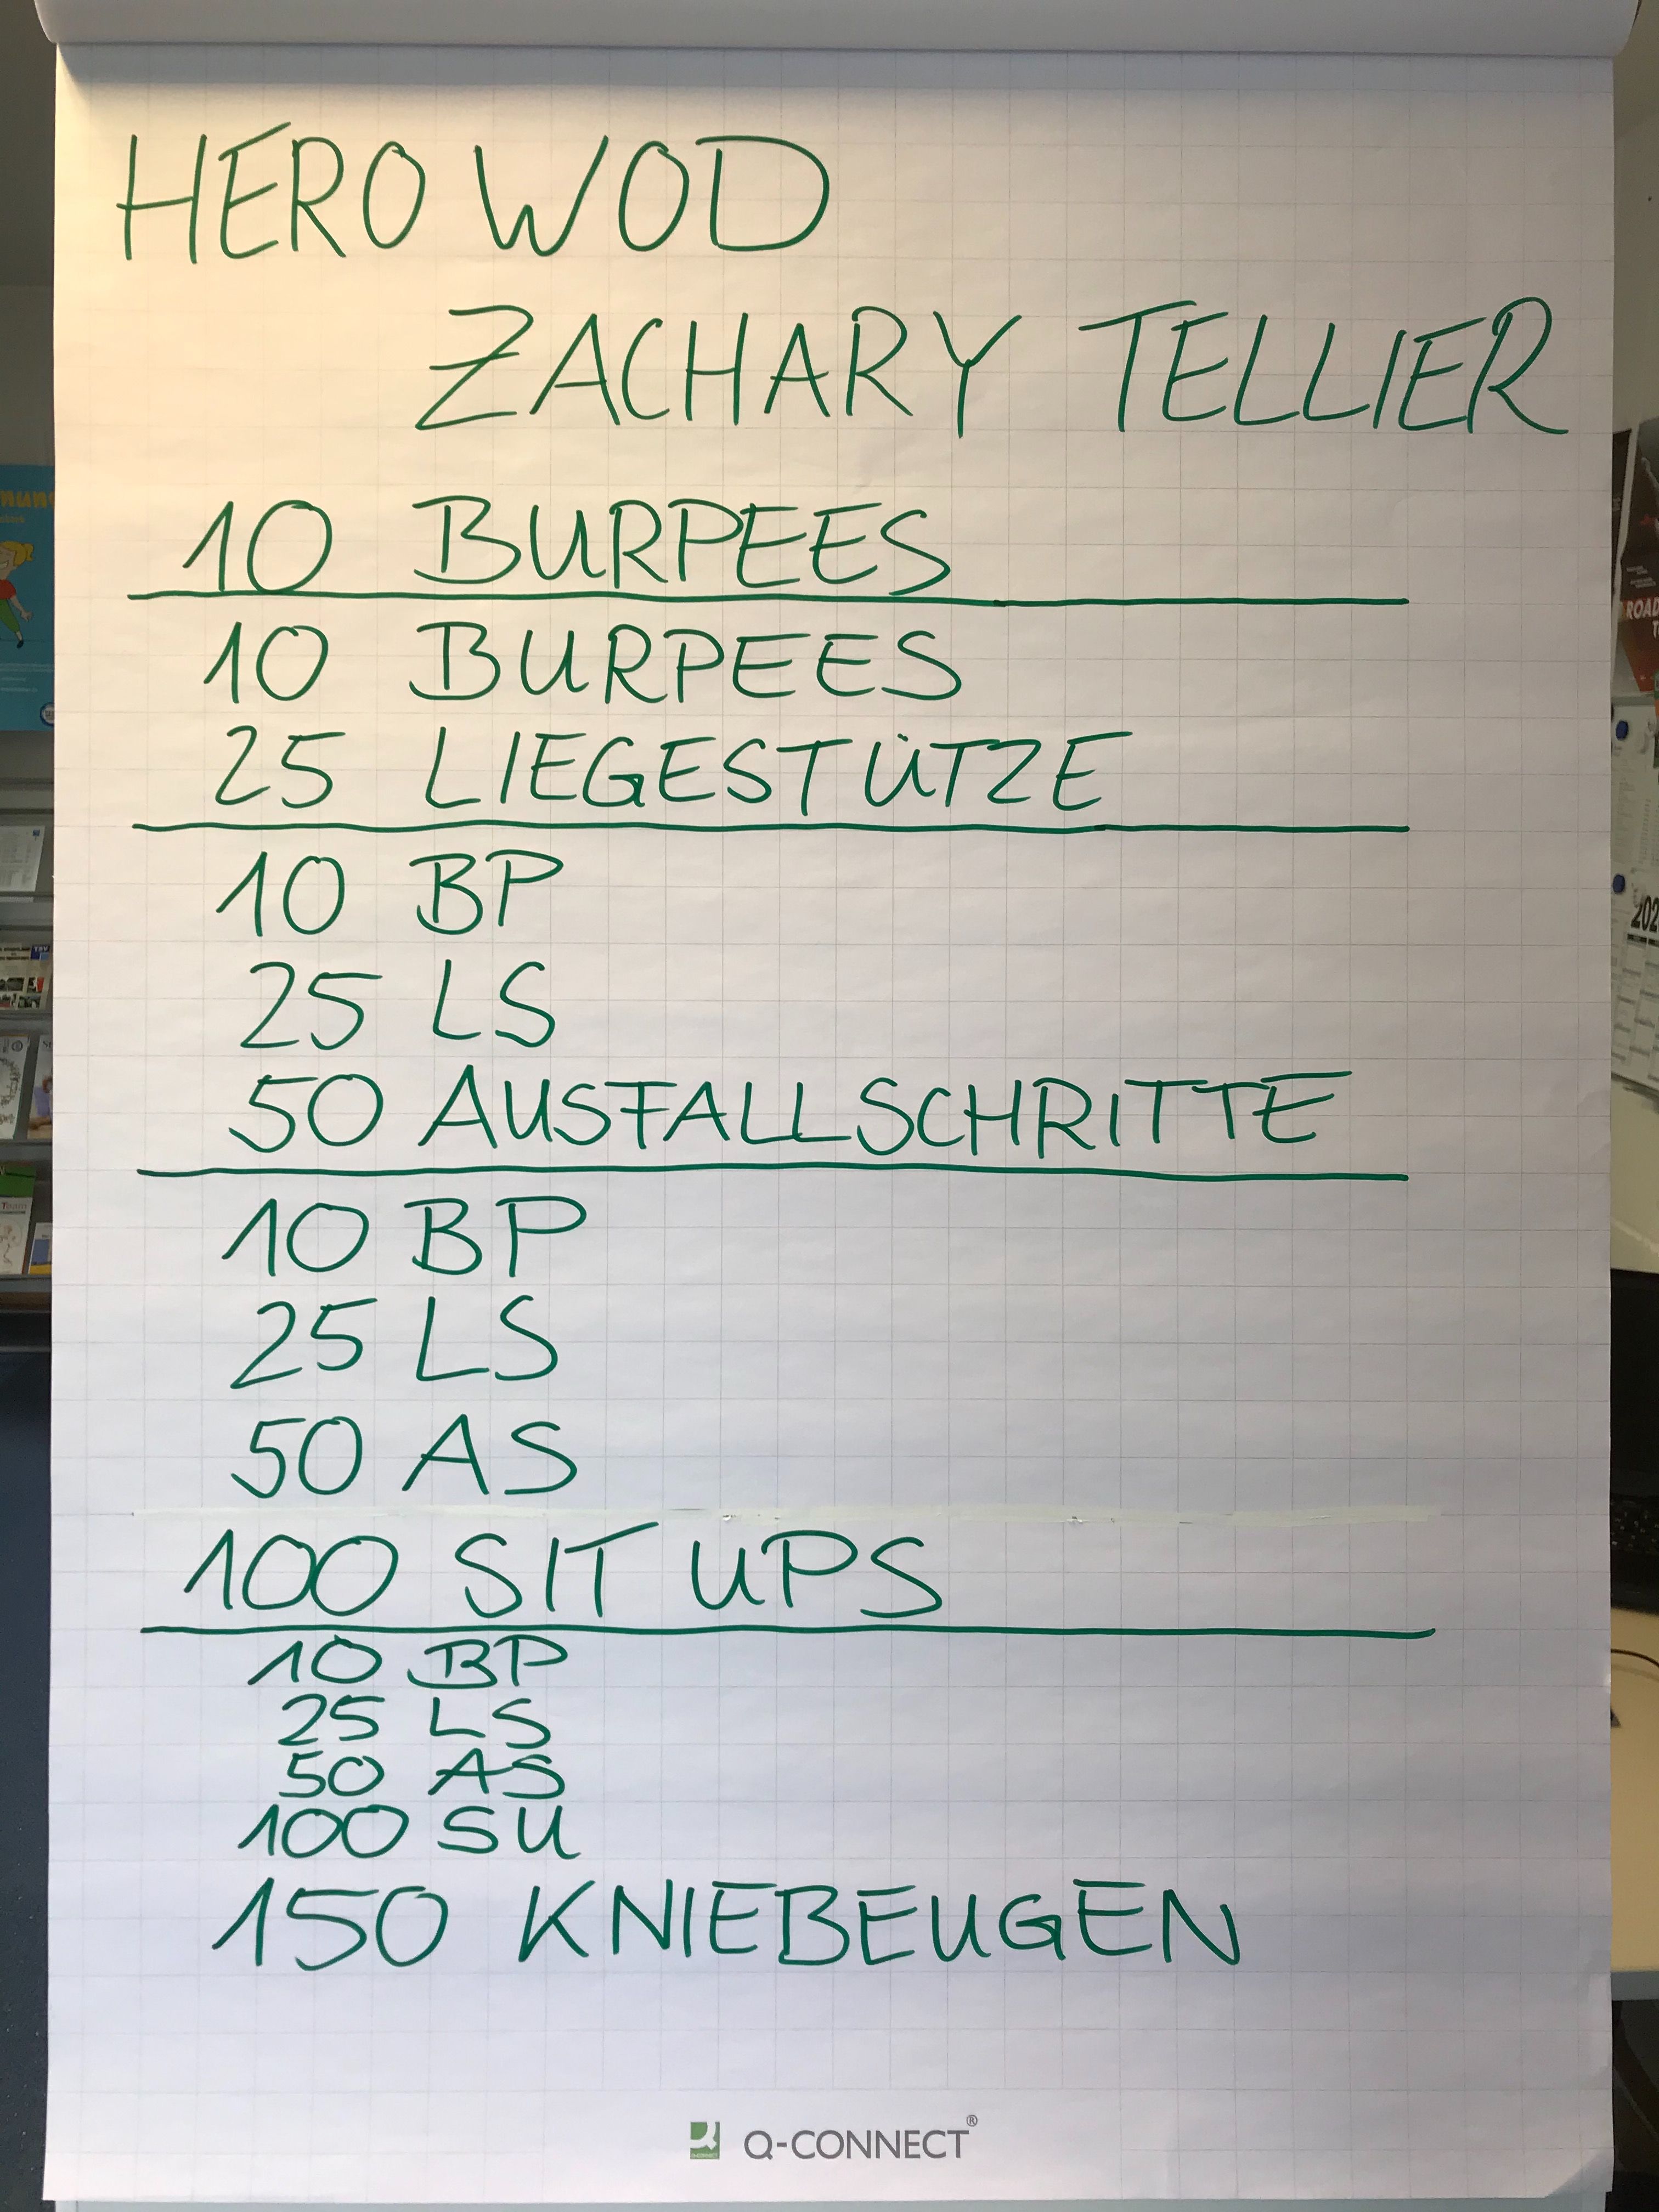 HERO WOD
ZACHARY TELLIER
10 BURPEES
10 BURPEES
25 LIEGESTÜTZE
10 BP
25 LS
50 AUSFALLSCHRITTE
10 BP
25 LS
50 AS
100 SIT UPS
10 BP
25 LS
50 AS
100 SU
150 KNIEBEUGEN
Q-CONNECT®
ROAD